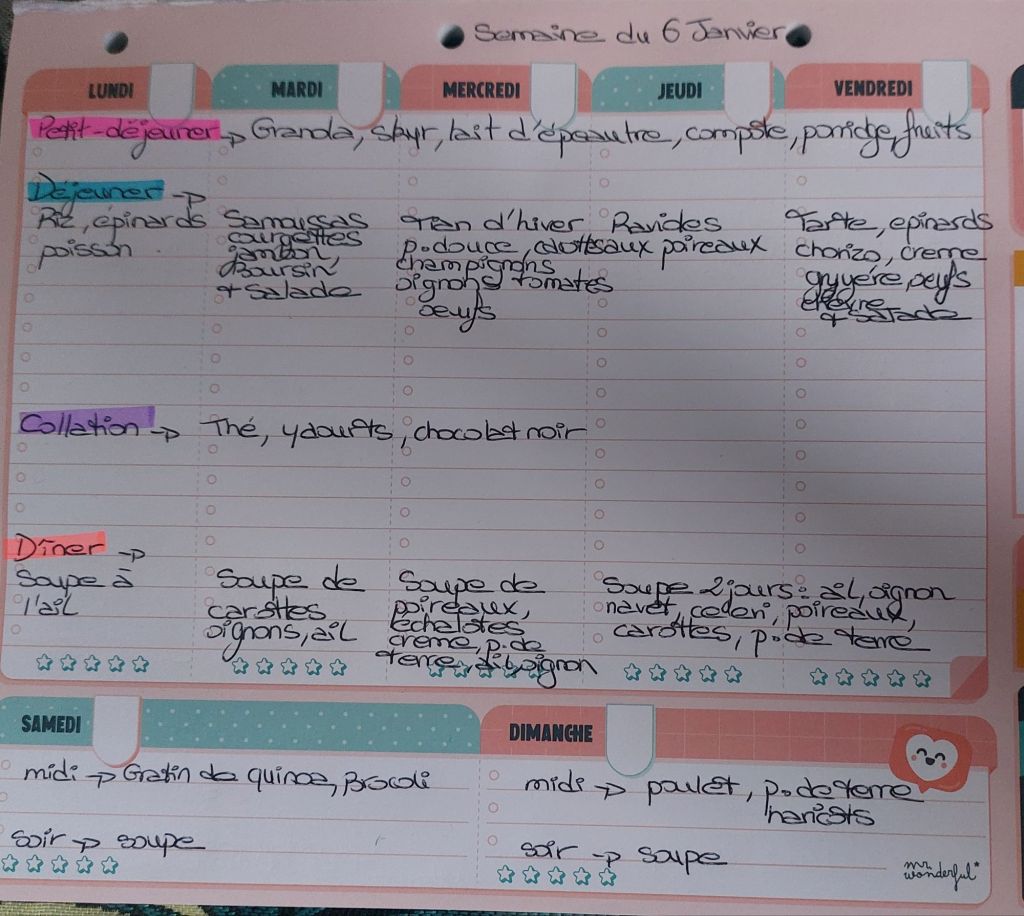 Semaine du 6 Janvier
LUNDI MARDI MERCREDI JEUDI VENDREDI
Petit-déjeuner → Granola, skyr, lait d'épeautre, compote, porridge, fruits
Déjeuner →
Riz, épinards
poisson
Samoussas
courgettes
jambon,
Boursin
+ Salade
Tian d'hiver
p.douce, carottes
champignons
oignons tomates
oeufs
Ravioles
aux poireaux
Tarte, epinards
chorizo, creme
gruyére, oeufs
chèvre
+ Salade
Collation → Thé, yaourts, chocolat noir
Dîner →
Soupe à
l'ail
Soupe de
carottes
oignons, ail
Soupe de
poireaux,
échalotes
creme, p.de
terre, ail, oignon
Soupe 2 jours: ail, oignon
navet, celeri, poireaux,
carottes, p.de terre
SAMEDI
midi → Gratin de quinoa, Brocoli
soir → soupe
DIMANCHE
midi → poulet, p.de terre
haricots
soir → soupe
mr. wonderful*